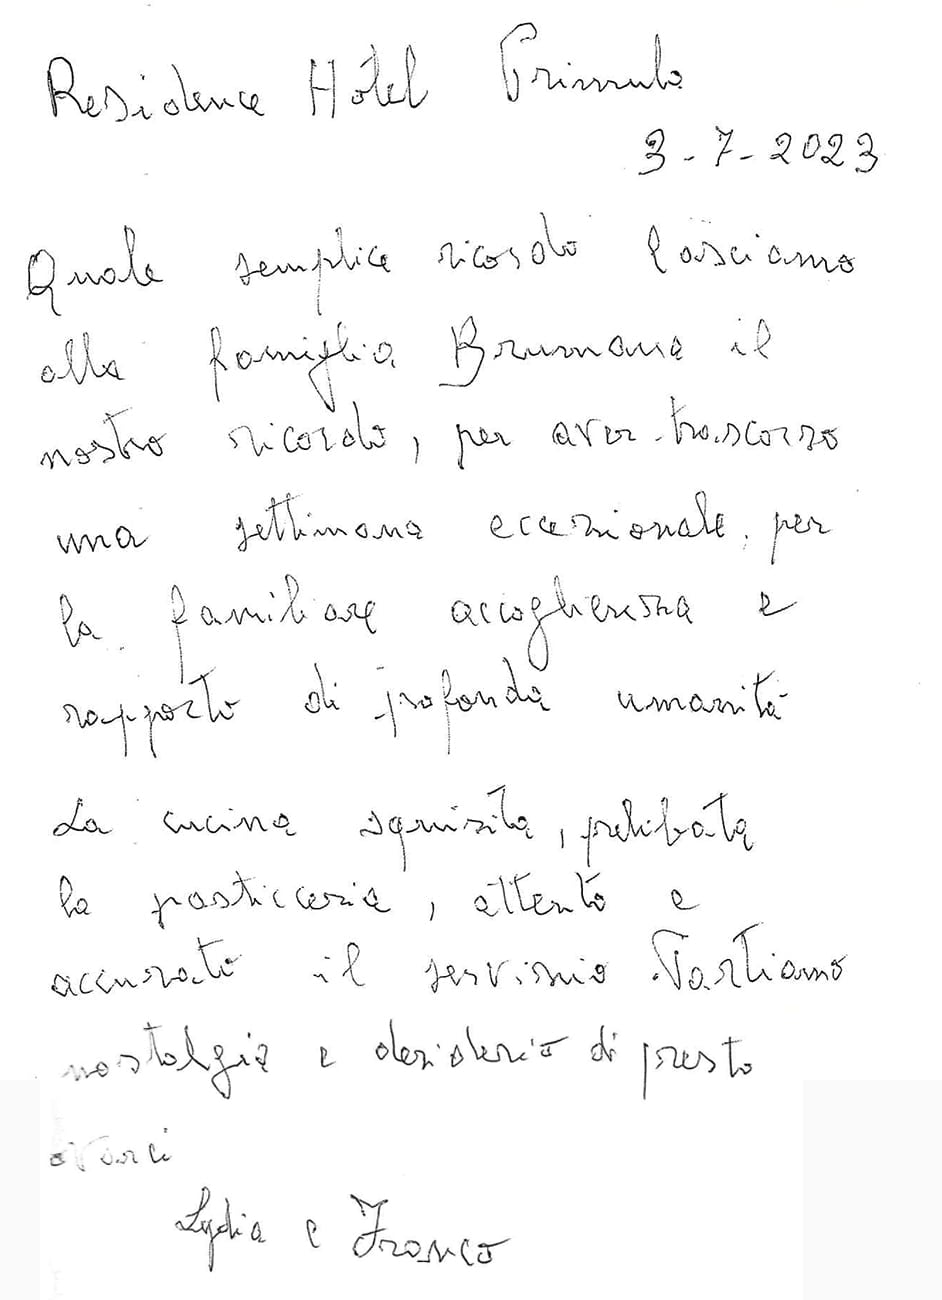 Residence Hotel Primula
3-7-2023
Quale semplice ricordo lasciamo
alla famiglia Brumana il
nostro ricordo, per aver trascorso
una settimana eccezionale, per
la familiare accoglienza e
rapporto di profonda umanità
La cucina squisita, prelibata
la pasticceria, attento e
accurato il servizio Partiamo
nostalgia e desiderio di presto
Lydia e Franco